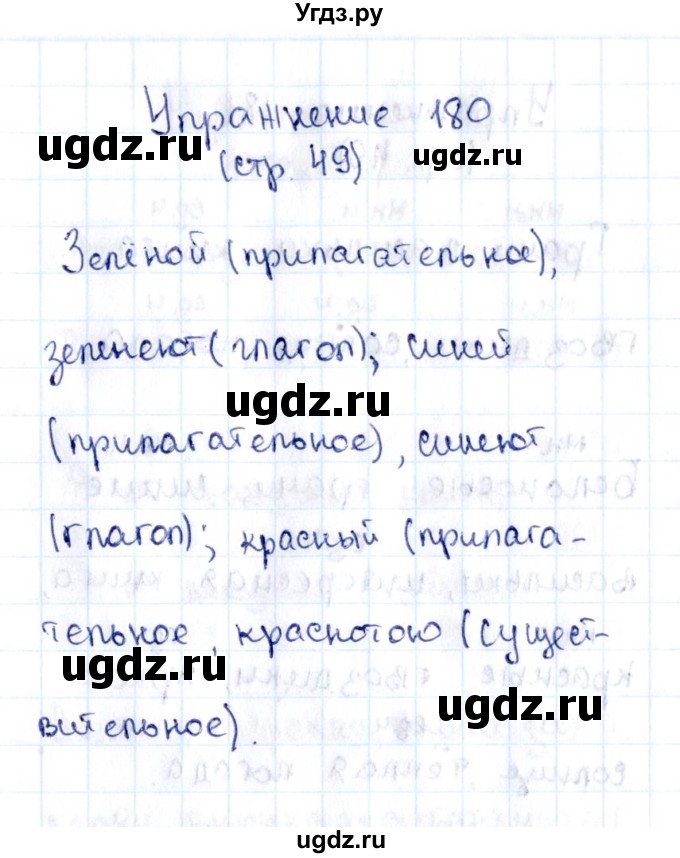 Угдз.ру
Упражнение 180
ugdz.ru
(стр. 49)
ugdz.ru
Зелёной (прилагательное),
зеленеют (глагол); синей
ugdz.ru
(прилагательное), синеют
(глагол); красный (прилага-
тельное, краснотою (сущест-
ugdz.ru
ugdz.ru
вительное).
ugdz.ru